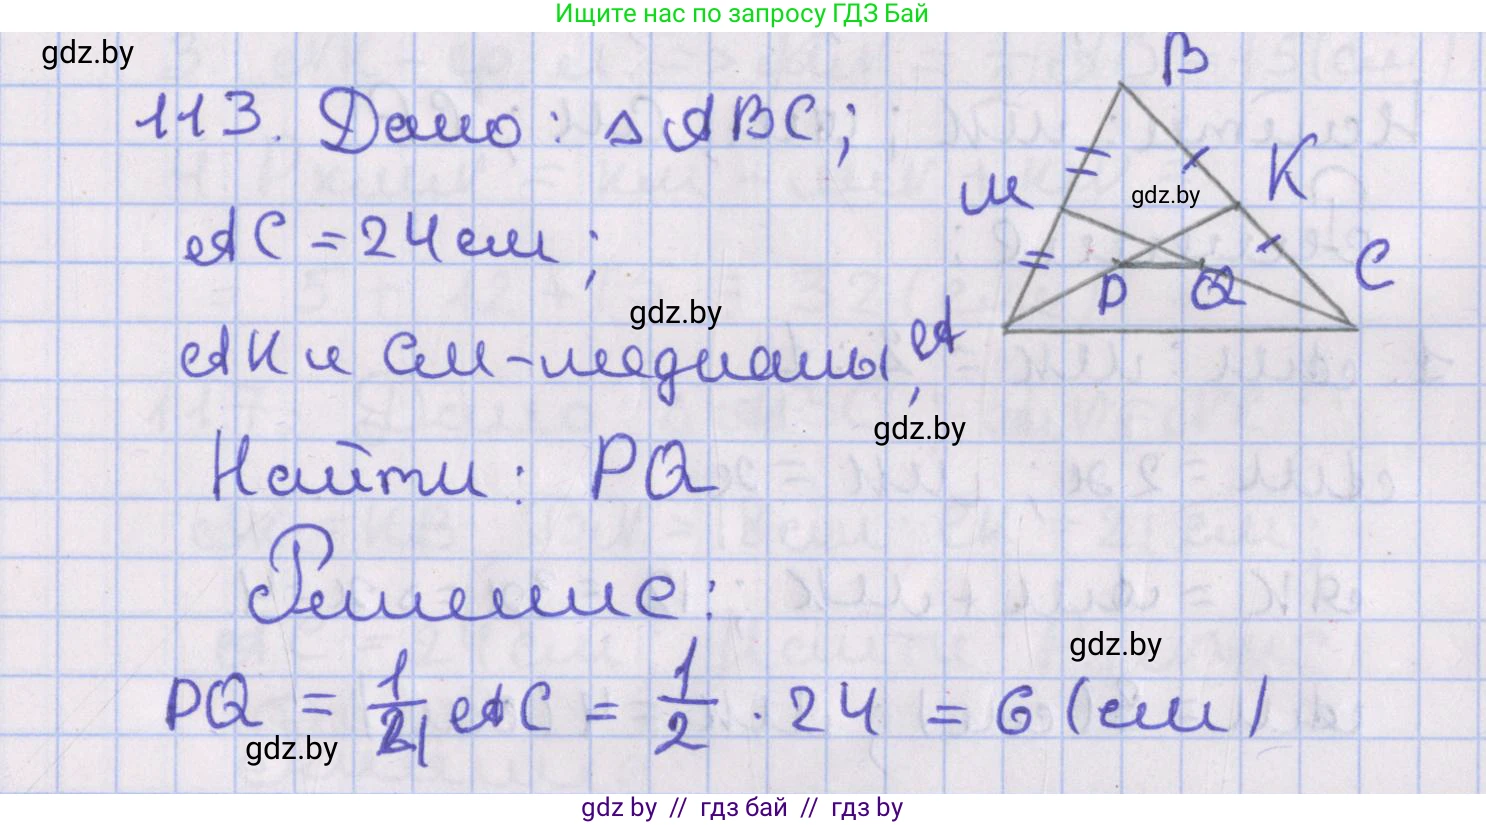 Ищите нас по запросу ГДЗ Бай
gdz.by
113. Дано: △ABC;
B
M
K
gdz.by
AC = 24 см;
P Q
C
gdz.by
AK и CM - медианы;
A
gdz.by
Найти: PQ
Решение:
gdz.by
PQ = 1/4 AC = 1/2 · 24 = 6 (см)
gdz.by
gdz by // гдз бай // гдз by